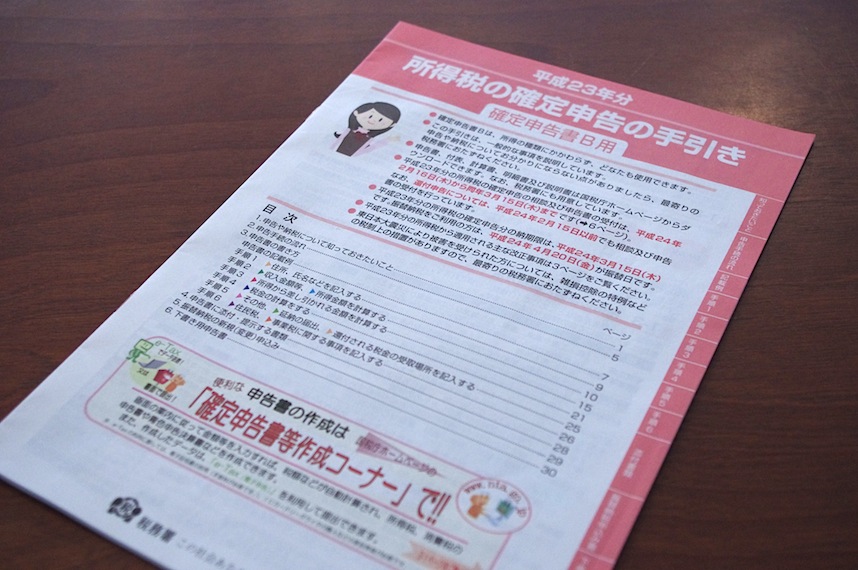 平成23年分
所得税の確定申告の手引き
確定申告書B用
● 確定申告書Bは、所得の種類にかかわらず、どなたも使用できます。
● この手引きは、一般的な事項を説明しています。
申告や納税についてお分かりにならない点がありましたら、最寄りの
税務署におたずねください。
● 申告書、付表、計算書、明細書及び説明書は国税庁ホームページからダ
ウンロードできます。なお、税務署にも用意しています。
● 平成23年分の所得税の確定申告の相談及び申告書の受付は、平成24年
2月16日(木)から同年3月15日(木)までです(➡6ページ)。
なお、還付申告については、平成24年2月15日以前でも相談及び申告
書の受付を行っています。
● 平成23年分の所得税の確定申告分の納期限は、平成24年3月15日(木)
です。振替納税をご利用の方は、平成24年4月20日(金)が振替日です。
● 平成23年分の所得税から適用される主な改正事項は3ページをご覧ください。
● 東日本大震災により被害を受けられた方については、雑損控除の特例など
の税制上の措置がありますので、最寄りの税務署におたずねください。
目 次
ページ
1. 申告や納税について知っておきたいこと 1
2. 申告手続の流れ 5
3. 申告書の書き方
申告書の記載例 7
手順1 ▶住所、氏名などを記入する 9
手順2 ▶収入金額等、▶所得金額を計算する 10
手順3 ▶所得から差し引かれる金額を計算する 15
手順4 ▶税金の計算をする 21
手順5 ▶その他、▶延納の届出、▶還付される税金の受取場所を記入する 25
手順6 ▶住民税、▶事業税に関する事項を記入する 26
4. 申告書に添付・提示する書類 28
5. 振替納税の新規(変更)申込み 29
6. 下書き用申告書 30
便利な 申告書の作成は 国税庁ホームページの
「確定申告書等作成コーナー」で!!
画面の案内に従って金額等を入力すれば、税額などが自動計算され、所得税、消費税の
申告書や青色申告決算書などを作成できます。
また、作成したデータは、
を利用して提出できます。
e-Tax
www.nta.go.jp
税務署
この社会あ
手順1
手順2
手順3
手順4
手順5
手順6